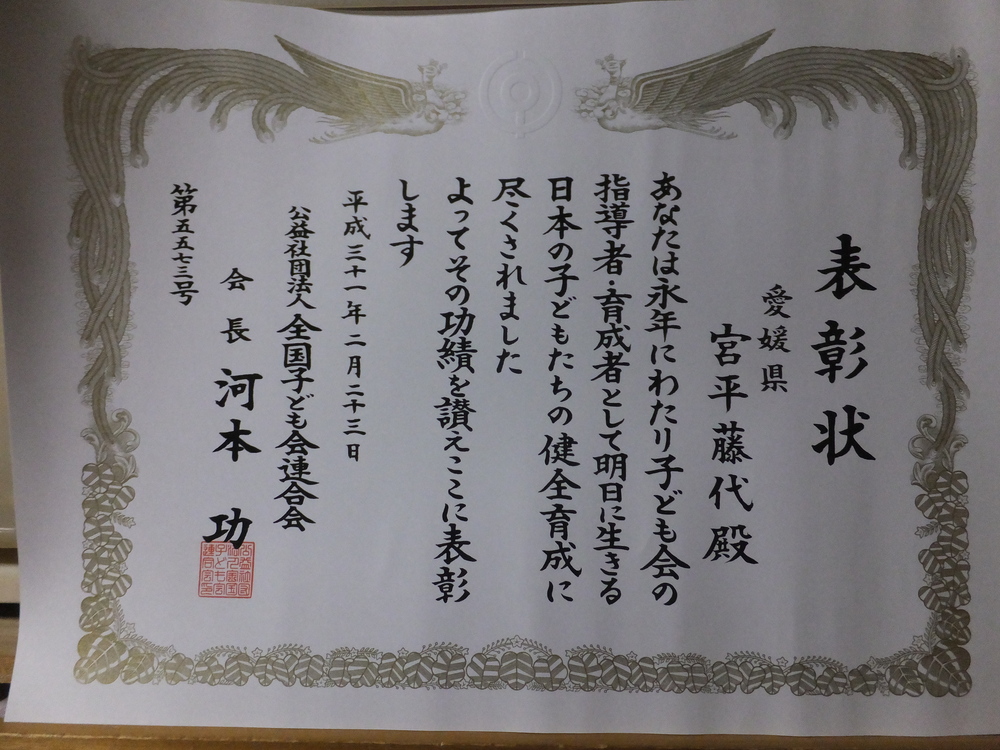 表彰状
愛媛県
宮平藤代殿
あなたは永年にわたり子ども会の
指導者・育成者として明日に生きる
日本の子どもたちの健全育成に
尽くされました
よってその功績を讃えここに表彰
します
平成三十一年二月二十三日
公益社団法人全国子ども会連合会
会長 河本 功
第五五七三号